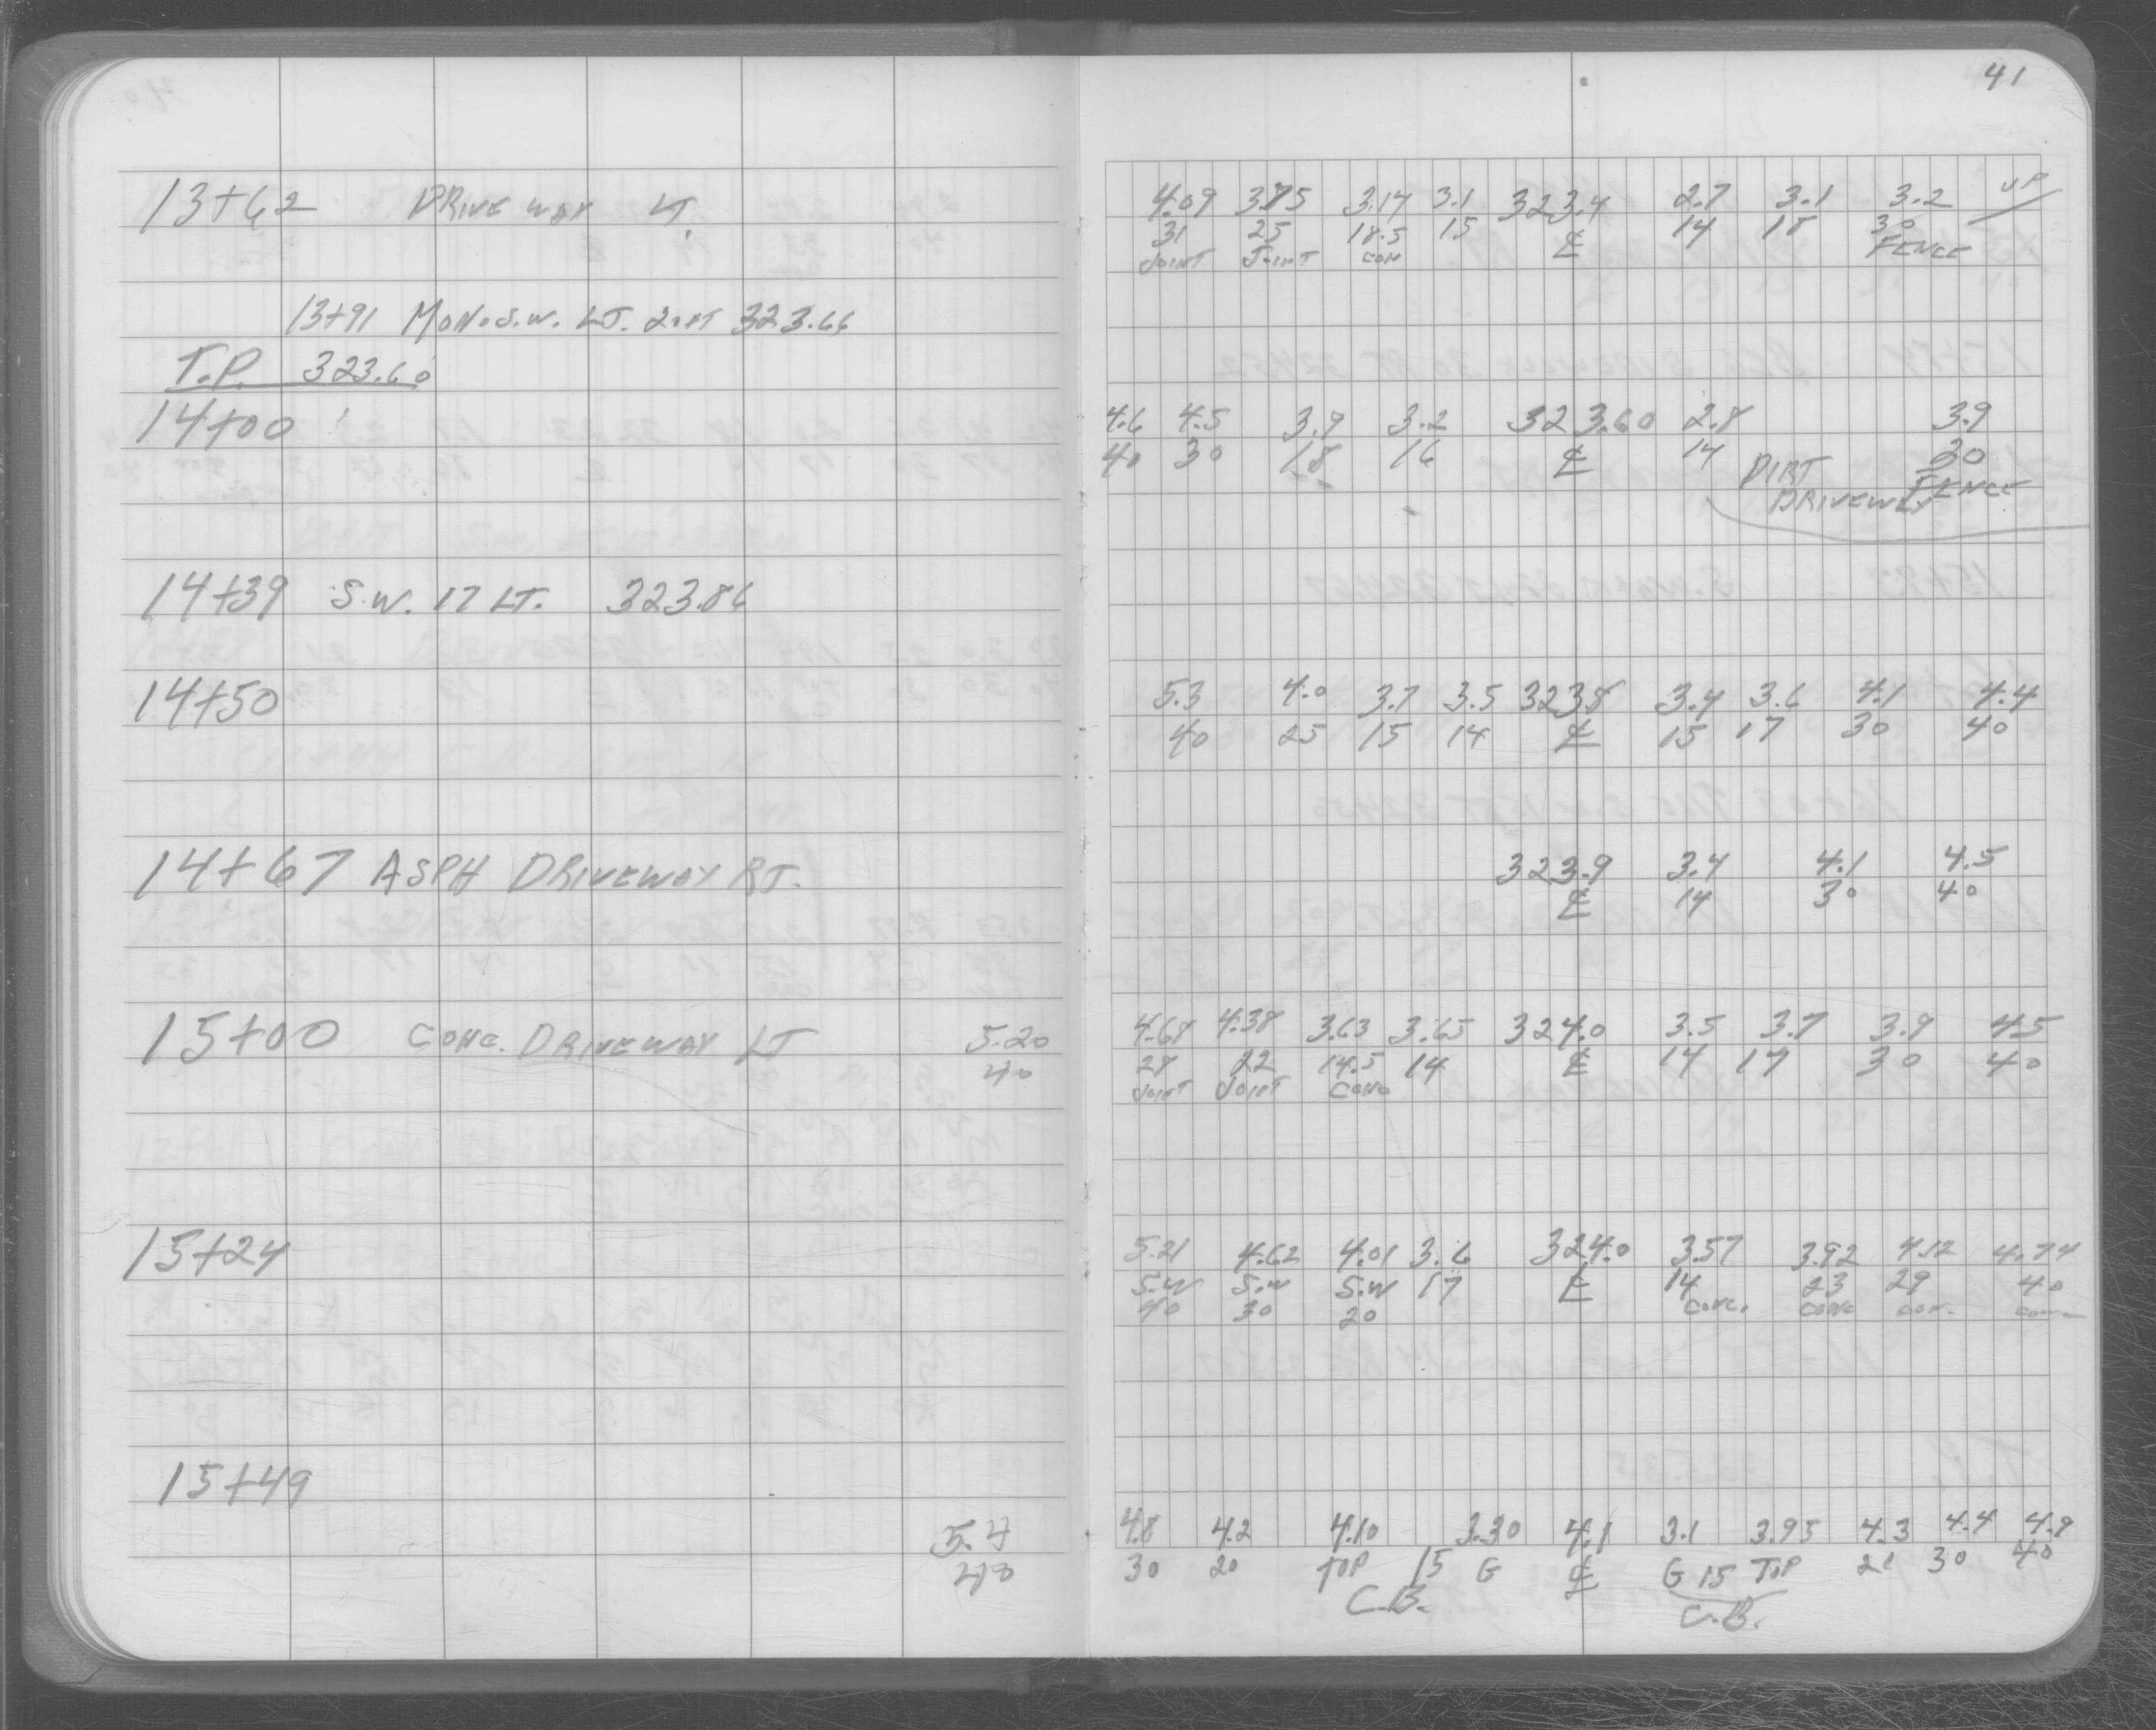 41
13+62 DRIVEWAY LT. 4.09 3.75 3.14 3.1 323.4 2.7 3.1 3.2 UP
31 25 18.5 15 ℄ 14 18 30
JOINT JOINT CON FENCE
13+91 MON. S.W. LT. 323.66
T.P. 323.60
14+00 4.6 4.5 3.9 3.2 323.60 2.8 3.9
40 30 18 16 ℄ 14 30
DIRT DRIVEWAY FENCE
14+39 S.W. 17 LT. 323.86
14+50 5.3 4.0 3.7 3.5 323.8 3.4 3.6 4.1 4.4
40 25 15 14 ℄ 15 17 30 40
14+67 ASPH DRIVEWAY RT. 323.9 3.4 4.1 4.5
℄ 14 30 40
15+00 CONC. DRIVEWAY LT 5.20 4.68 4.38 3.63 3.65 324.0 3.5 3.7 3.9 4.5
40 28 22 14.5 14 ℄ 14 17 30 40
JOINT JOINT CONC
15+24 5.21 4.62 4.01 3.6 324.0 3.57 3.92 4.12 4.74
S.W S.W S.W 17 ℄ 14 23 29 40
40 30 20 CONC. CONC CON. CON
15+49
5.4 4.8 4.2 4.10 3.30 4.1 3.1 3.95 4.3 4.4 4.9
40 30 20 TOP 15 G ℄ G 15 TOP 21 30 40
C.B. C.B.